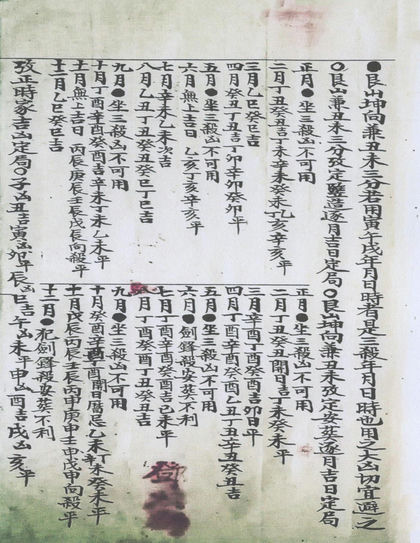 ●艮山坤向兼丑未三分若用寅午戌年月日時者是三殺年月日時也用之大凶切宜避之
○艮山兼丑未三分攷定豎造逐月吉日定局○艮山坤向兼丑未攷定安葬逐月吉日定局
正月●坐三殺凶不可用
二月丁丑癸丑吉丁未辛未癸未乙亥辛亥平
三月乙巳癸巳吉
四月癸丑丁丑吉丁卯辛卯癸卯平
五月●坐三殺凶不可用
六月無上吉日 乙亥丁亥辛亥平
七月辛未乙未次吉
八月乙丑丁丑癸丑癸巳丁巳吉
九月●坐三殺凶不可用
十月丁酉辛酉癸酉吉辛未丁未乙未平
十一月無上吉日 丙辰庚辰壬辰戊辰向殺平
十二月乙巳癸巳吉
正月●坐三殺凶不可用
二月丁丑癸丑開日吉丁未癸未平
三月辛酉丁酉癸酉吉卯日平
四月丁酉辛酉癸酉乙丑丁丑辛丑癸丑吉
五月●坐三殺凶不可用
六月●劍鋒殺安葬不利
七月丁酉癸酉辛酉吉乙未平
八月丁酉癸酉丁丑癸丑吉
九月●坐三殺凶不可用
十月癸酉辛酉丁酉開日曆忌乙未丁未癸未平
十一月戊辰丙辰壬辰丙申庚申壬申戊申向殺平
十二月●犯劍鋒殺安葬不利
攷正時家吉凶定局○子凶丑吉寅凶卯平辰凶巳吉午凶未平申凶酉吉戌凶亥平